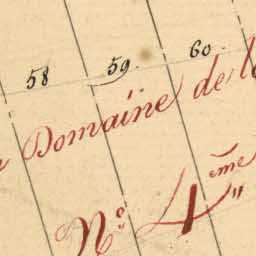 58 59. 60.
Domaine de
N.º 4.ème "